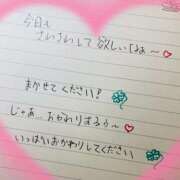 今日も
さいさいして欲しい(ねぁ〜
まかせてください!
じゃあ、おかわりするぅ〜
いっぱいおかわりしてください